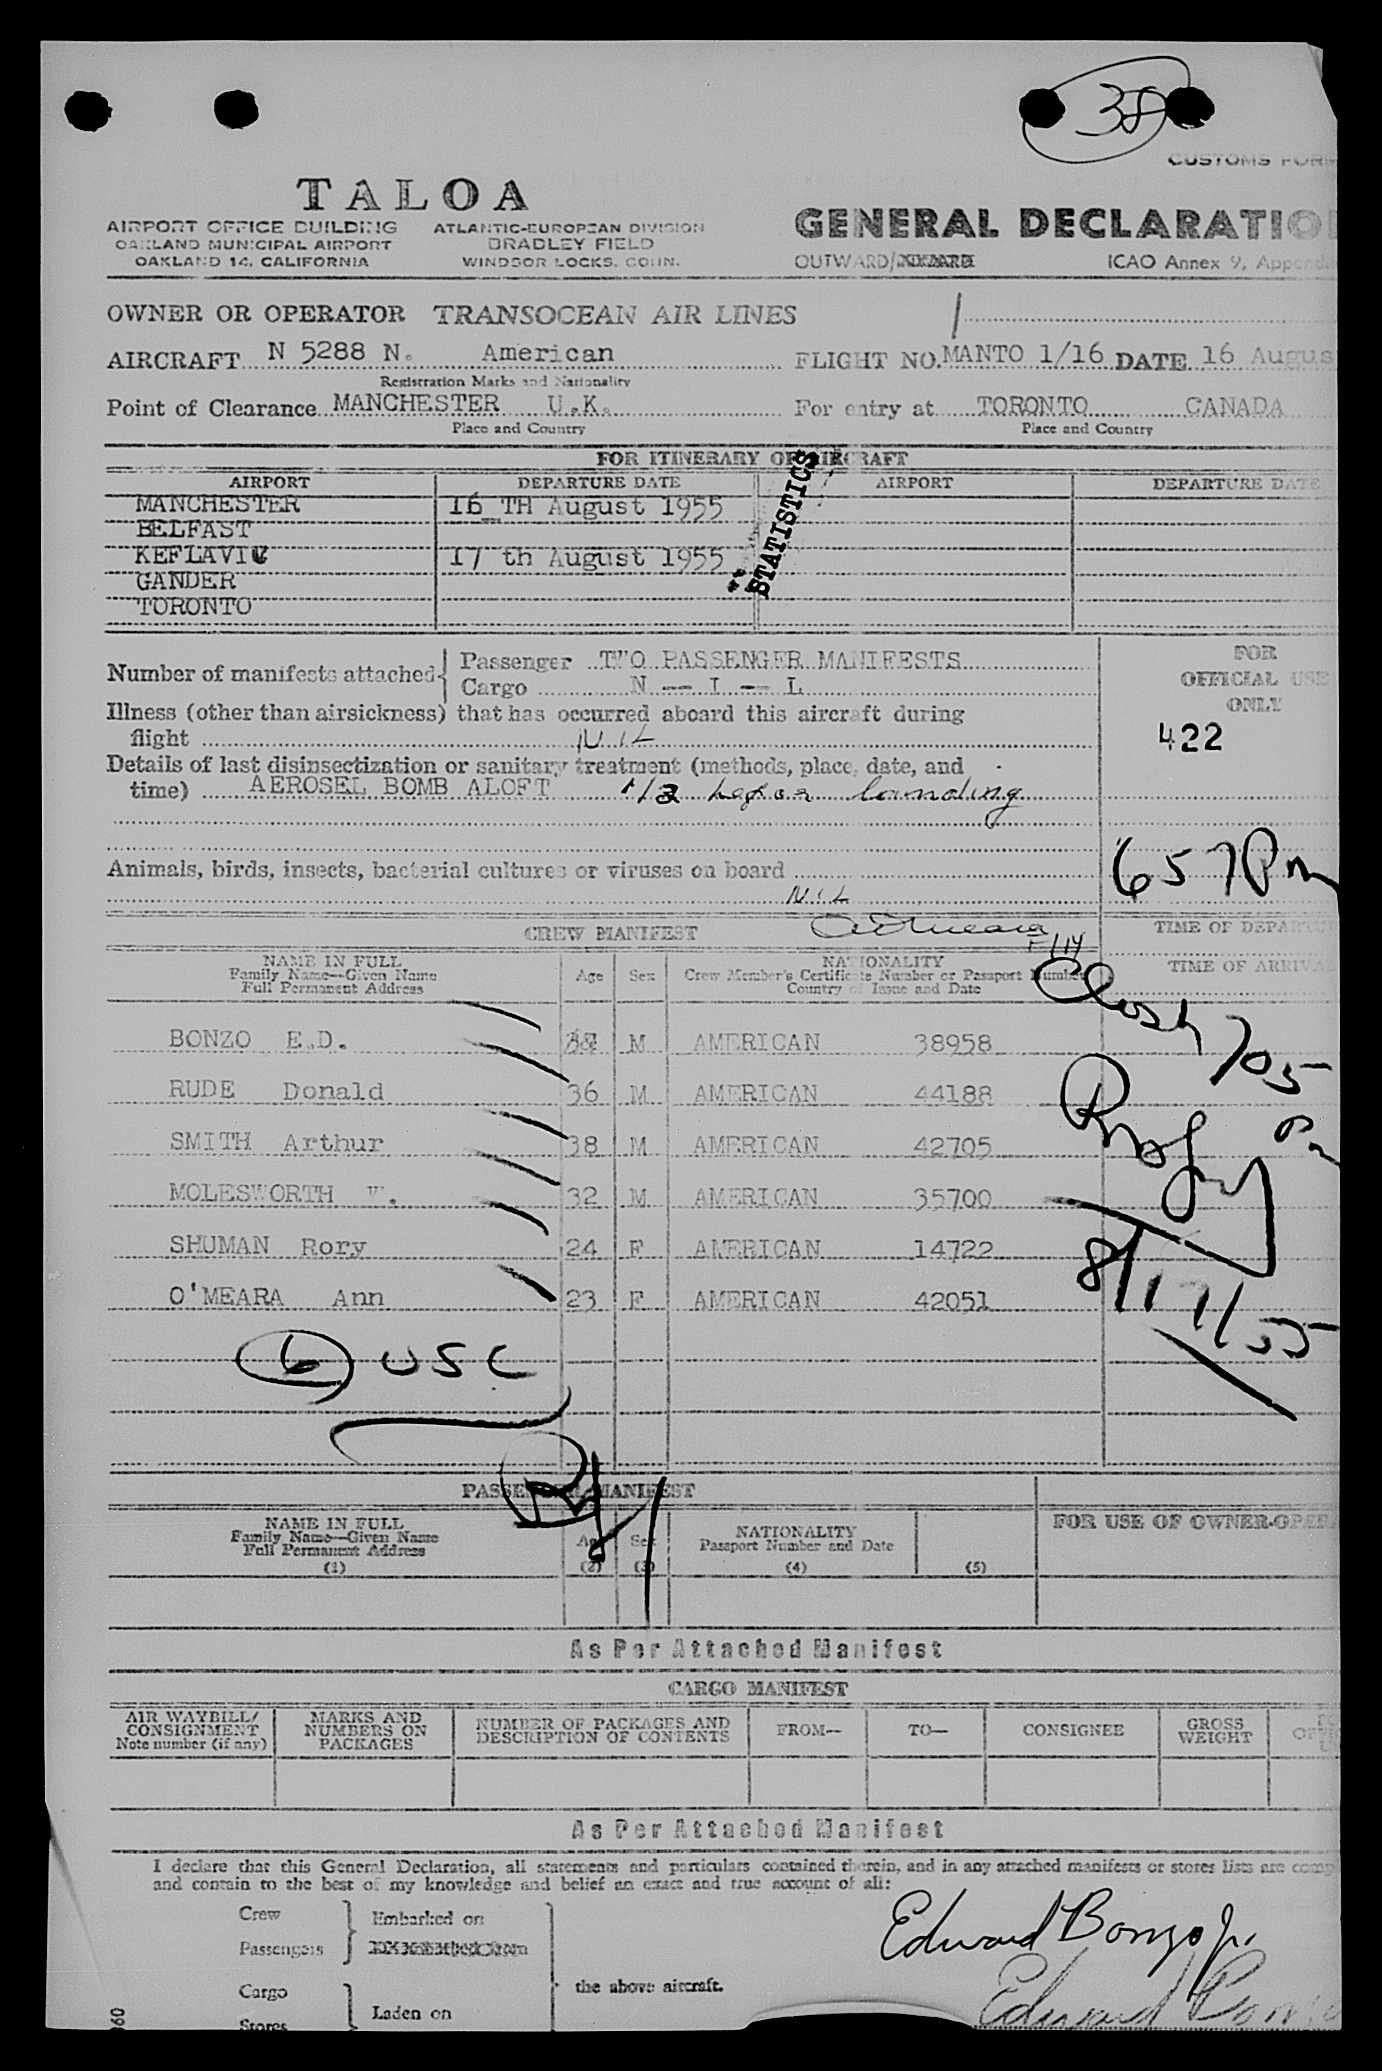 38
CUSTOMS FORM
TALOA
AIRPORT OFFICE BUILDING
OAKLAND MUNICIPAL AIRPORT
OAKLAND 14, CALIFORNIA
ATLANTIC-EUROPEAN DIVISION
BRADLEY FIELD
WINDSOR LOCKS, CONN.
GENERAL DECLARATIO
OUTWARD/
ICAO Annex 9, Appende
OWNER OR OPERATOR TRANSOCEAN AIR LINES
AIRCRAFT N 5288 N. American FLIGHT NO. MANTO 1/16 DATE 16 Augus
Registration Marks and Nationality
Point of Clearance MANCHESTER U.K. For entry at TORONTO CANADA
Place and Country Place and Country
FOR ITINERARY OF AIRCRAFT
AIRPORT DEPARTURE DATE AIRPORT DEPARTURE DATE
MANCHESTER 16 TH August 1955
BELFAST
KEFLAVIK 17 th August 1955
GANDER
TORONTO
STATISTICS
Number of manifests attached { Passenger TWO PASSENGER MANIFESTS
Cargo N -- I -- L
FOR
OFFICIAL USE
ONLY
422
Illness (other than airsickness) that has occurred aboard this aircraft during
flight NIL
Details of last disinsectization or sanitary treatment (methods, place, date, and
time) AEROSEL BOMB ALOFT 1/2 before landing
Animals, birds, insects, bacterial cultures or viruses on board
NIL
657 Pm
TIME OF DEPARTU
TIME OF ARRIVA
CREW MANIFEST
NAME IN FULL
Family Name—Given Name
Full Permanent Address
Age Sex
NATIONALITY
Crew Member's Certificate Number or Passport Number
Country of Issue and Date
BONZO E.D. M AMERICAN 38958
RUDE Donald 36 M AMERICAN 44188
SMITH Arthur 38 M AMERICAN 42705
MOLESWORTH W. 32 M AMERICAN 35700
SHUMAN Rory 24 F AMERICAN 14722
O'MEARA Ann 23 F AMERICAN 42051
705
Pm
8/17/55
6 USC
PASSENGER MANIFEST
NAME IN FULL
Family Name—Given Name
Full Permanent Address
(1)
Age
(2)
Sex
(3)
NATIONALITY
Passport Number and Date
(4) (5)
FOR USE OF OWNER-OPERA
As Per Attached Manifest
CARGO MANIFEST
AIR WAYBILL/
CONSIGNMENT
Note number (if any)
MARKS AND
NUMBERS ON
PACKAGES
NUMBER OF PACKAGES AND
DESCRIPTION OF CONTENTS
FROM— TO— CONSIGNEE
GROSS
WEIGHT
As Per Attached Manifest
I declare that this General Declaration, all statements and particulars contained therein, and in any attached manifests or stores lists are comp
and contain to the best of my knowledge and belief an exact and true account of all:
Crew
Passengers
Embarked on
Cargo
Stores
Laden on
the above aircraft.
Edward Bonzo Jr.
Edward Bonzo